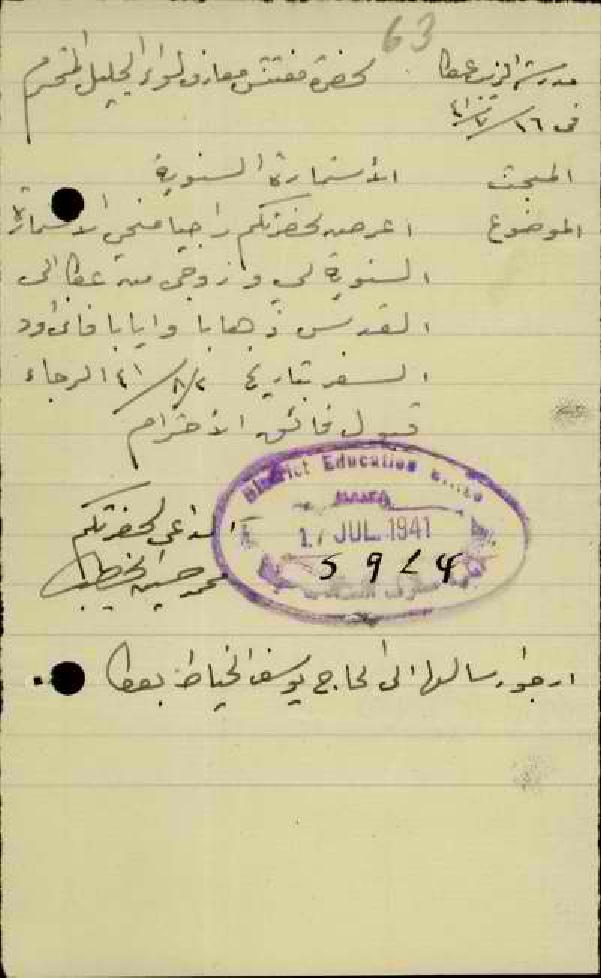 63
مدرسة الزيب عكا
حضرة مفتش معارف لواء الجليل المحترم
في ١٦/٧/٤١
المبحث الاستمارة السنوية
الموضوع اعرض لحضرتكم راجيا منحي الاستمارة
السنوية لي و زوجي من عكا الى
القدس ذهابا وايابا فاني اود
السفر بتاريخ ٢/٨/٤١ الرجاء
قبول فائق الاحترام
District Education Office
HAIFA
17 JUL 1941
5924
الداعي لحضرتكم
محمد حسين الخطيب
ارجو ارسالها الى الحاج يوسف الخياط بعكا